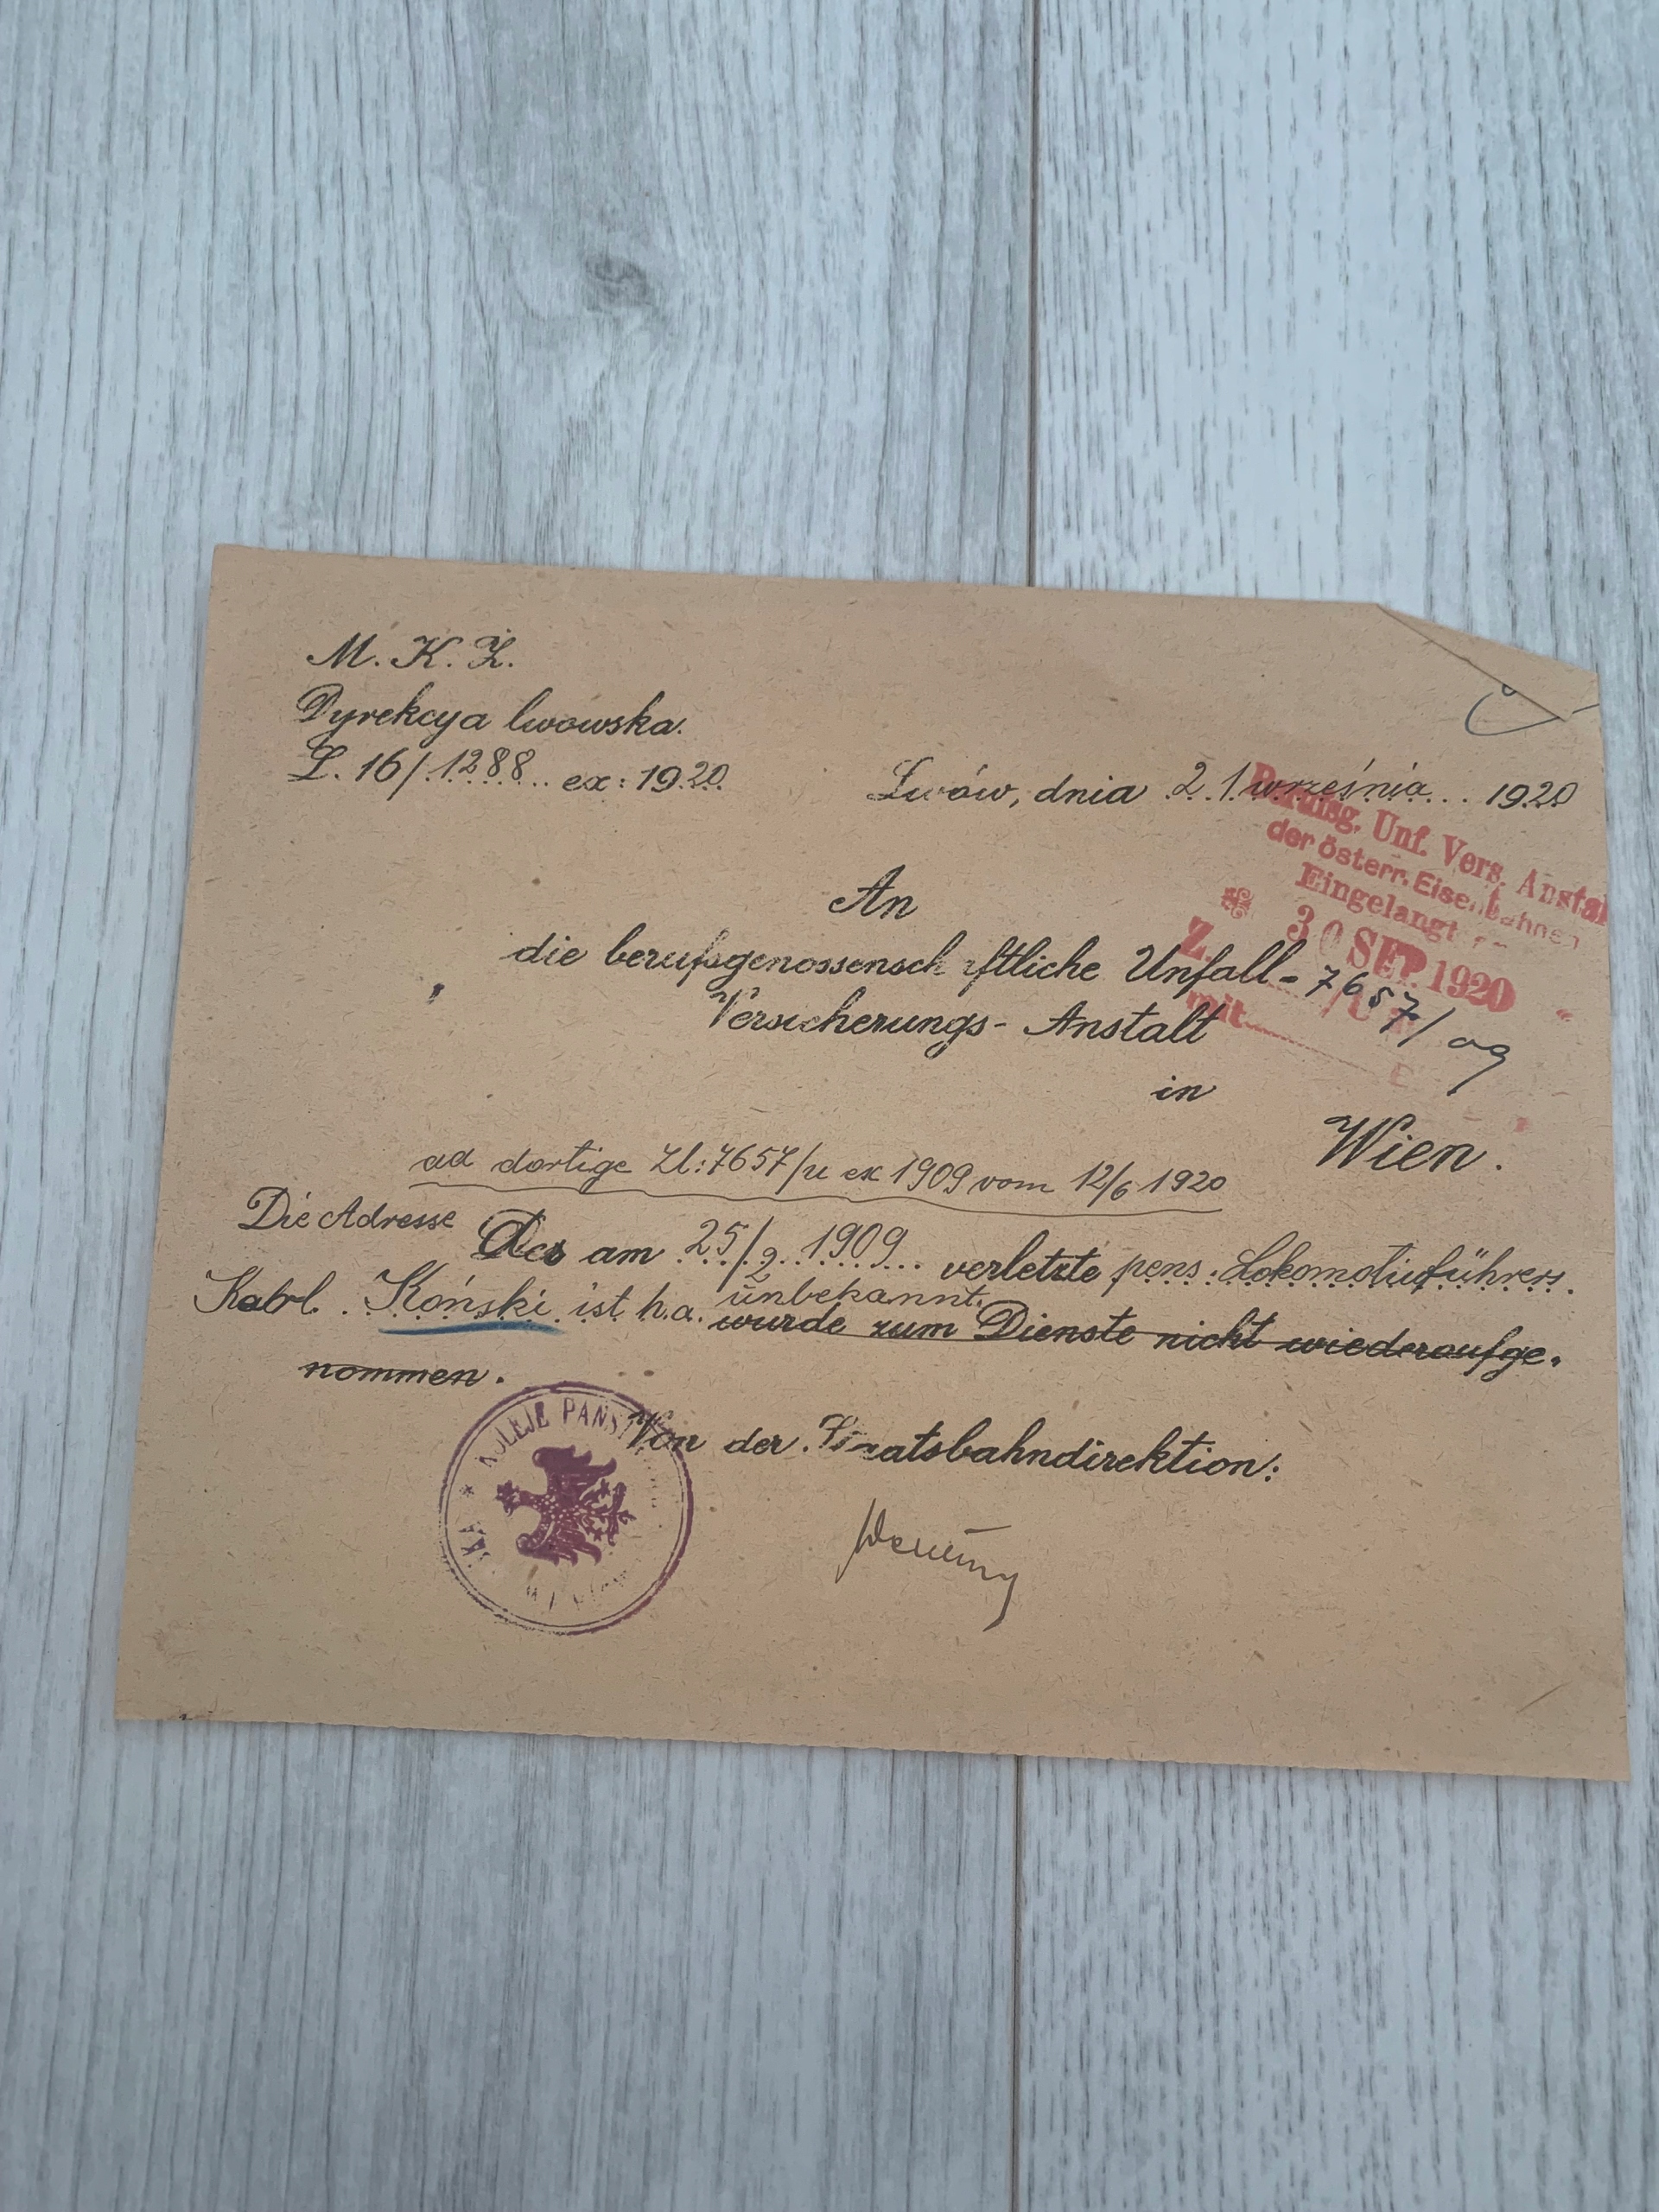 M. K. Ż.
Dyrekcya lwowska.
L. 16/ 1288 ex: 1920.
Lwów, dnia 21 września 1920
Unf. Vers. Anstal
der österr. Eisenbahnen
Eingelangt
30 SEP. 1920
Z. 7657/09
mit
An
die berufsgenossenschaftliche Unfall-
Versicherungs-Anstalt
in
Wien.
ad dortige Zl: 7657/u ex 1909 vom 12/6 1920
Die Adresse Des am 25/2 1909 verletzte pens. Lokomotivführers
Koński ist h.a. unbekannt.
wurde zum Dienste nicht wiederaufge-
nommen.
Von der Staatsbahndirektion:
KOLEJE PAŃST